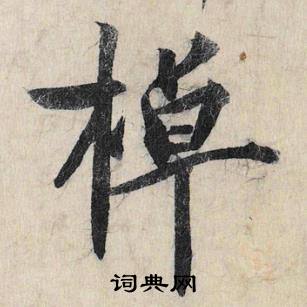 棹
词典网